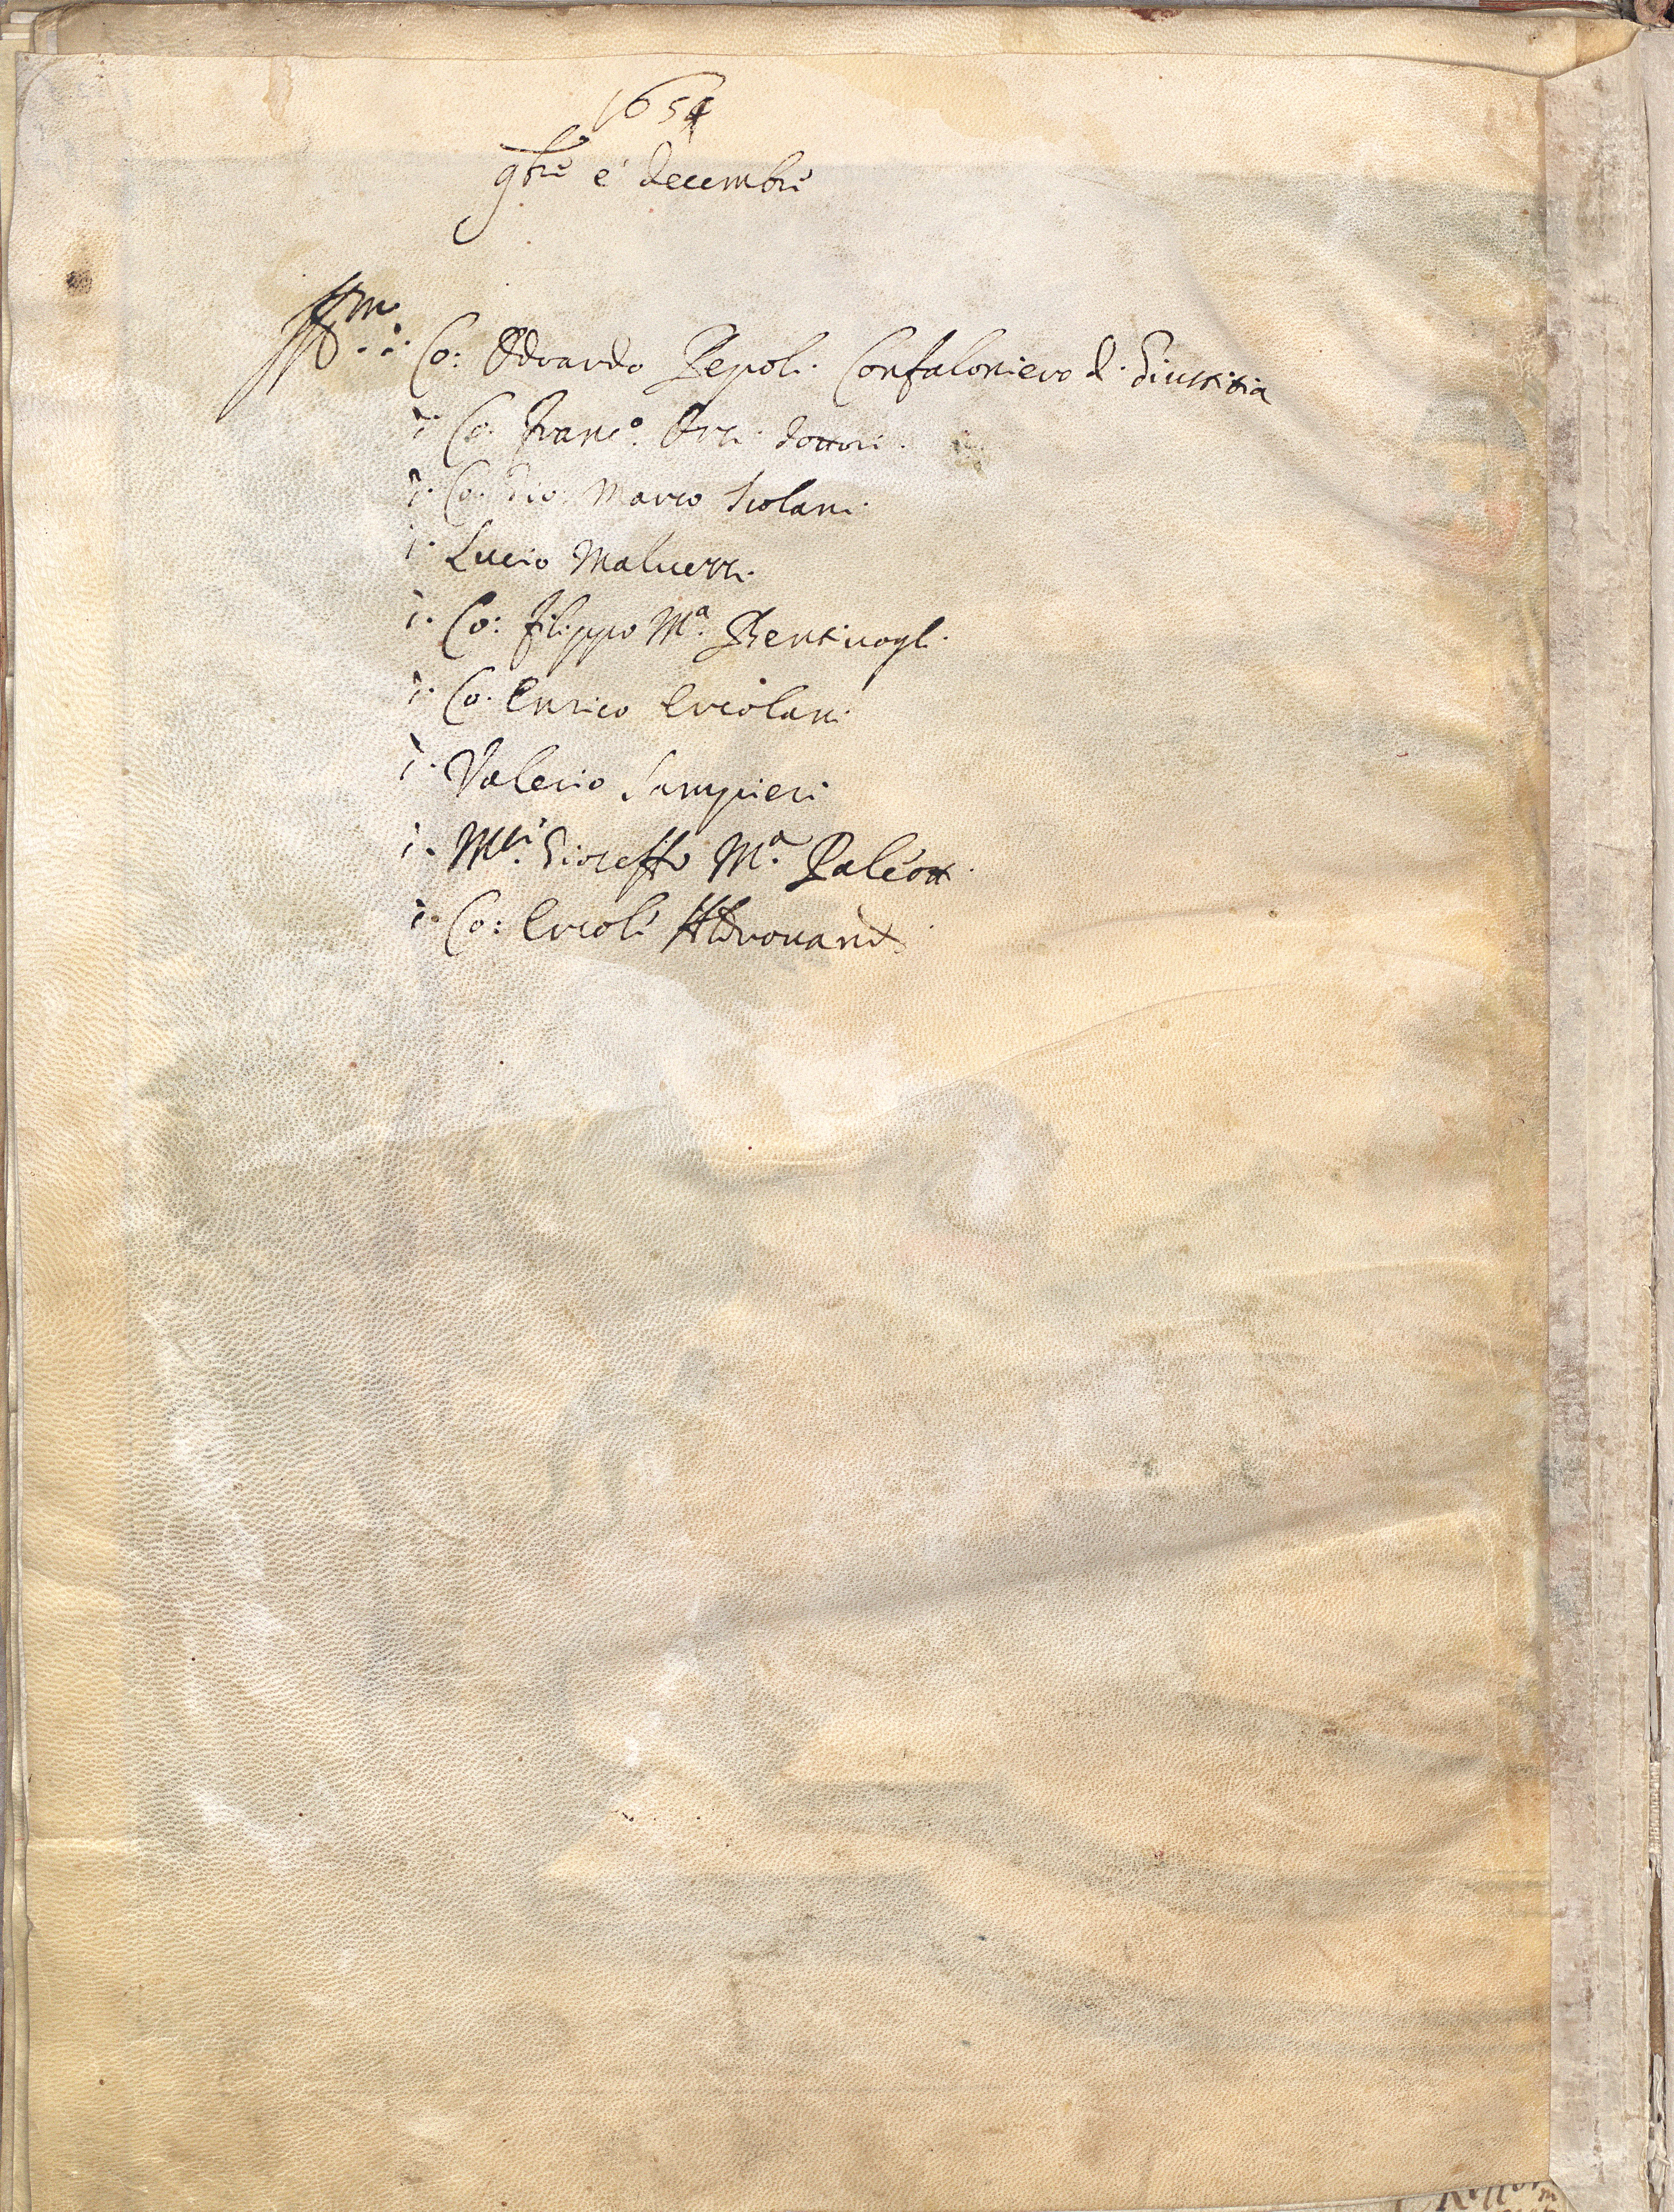 1654
9bre e decembre
Ill.mi Co: Odoardo Pepoli Confaloniero di Giustitia
Co. Franc.o Orsi dottore
Co. Gio: Marco Isolani
Lucio Maluezzi
Co: Filippo M.a Bentiuogli
Co. Enrico Ercolani
Valerio Sampieri
M.se Gioseffo M.a Paleotti
Co: Ercole Aldrouandi